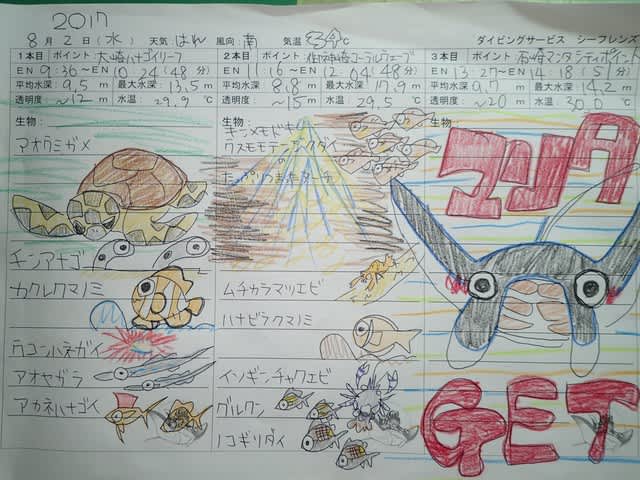 2017
8月2日(水) 天気 はれ 風向: 南 気温 ℃ ダイビングサービス シーフレンズ
1本目 ポイント 大崎ハナゴイリーフ
EN 9:36 ~ EX 10:24 (48分)
平均水深 9.5 m 最大水深 13.5 m
透明度: ~12 m 水温: 29.9 ℃
生物:
アオウミガメ
チンアナゴ
カクレクマノミ
ウコンハネガイ
アオヤガラ
アカネハナゴイ
2本目 ポイント
EN 11:16 ~ EX 12:04 (48分)
平均水深 8.8 m 最大水深 17.9 m
透明度: ~15 m 水温: 29.5 ℃
生物:
キンメモドキ
クスモモテンジクダイ
の
ムチカラマツエビ
ハナビラクマノミ
イソギンチャクエビ
グルクン
ノコギリダイ
3本目 ポイント 石崎マンタシティポイント
EN 13:27 ~ EX 14:18 (51分)
平均水深 9.7 m 最大水深 14.2 m
透明度: ~20 m 水温: 30.0 ℃
生物:
マンタ
GET